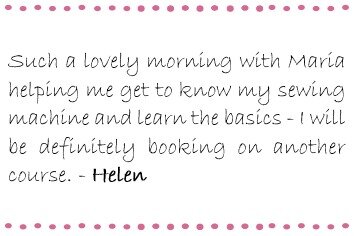 Such a lovely morning with Maria
helping me get to know my sewing
machine and learn the basics - I will
be definitely booking on another
course. - Helen